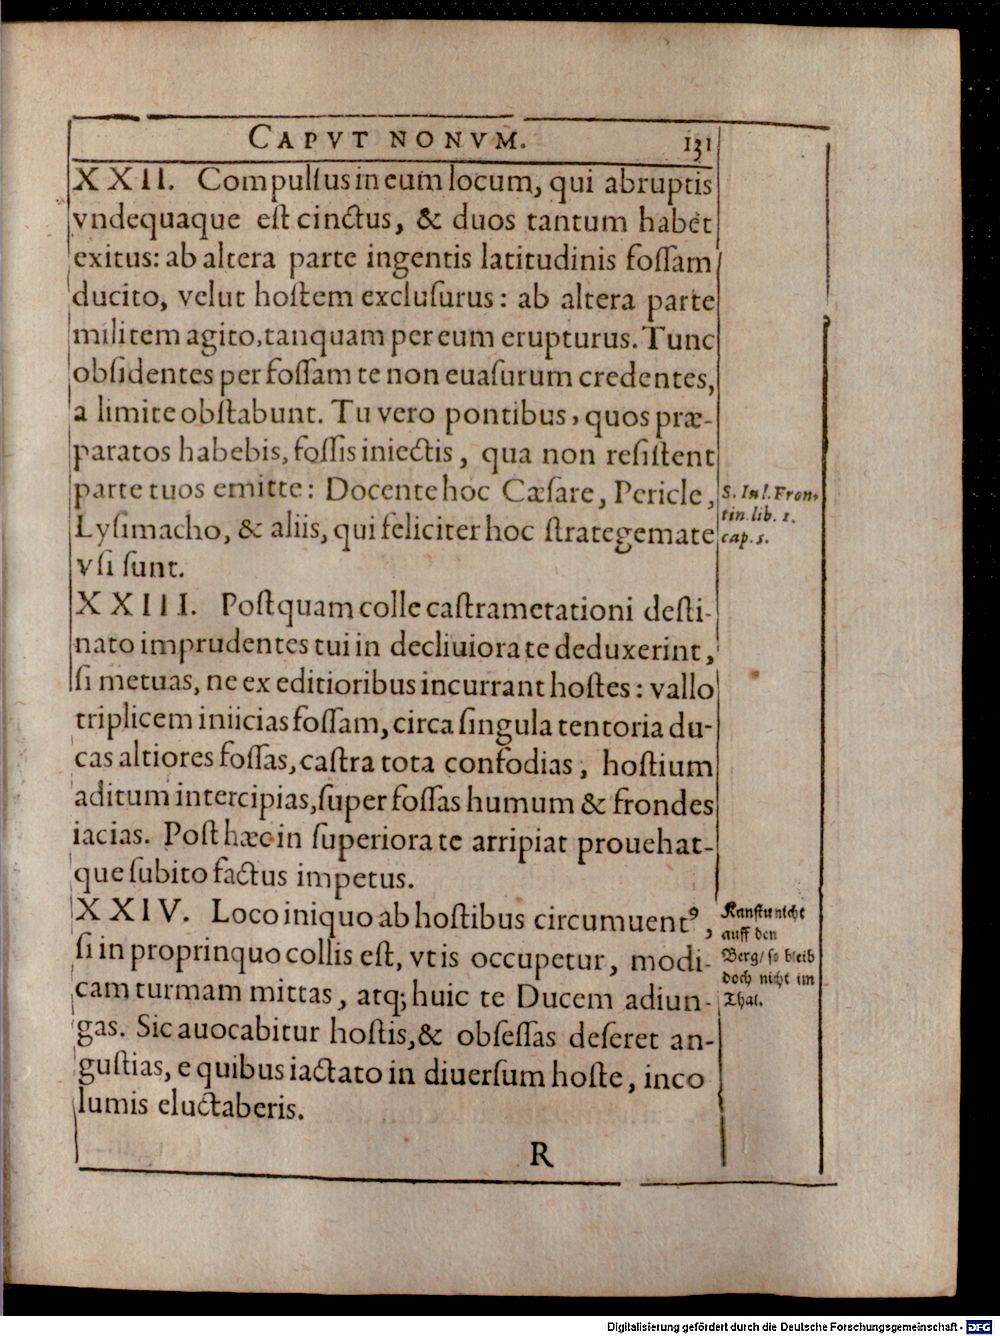 CAPVT NONVM. 131
XXII. Compulſus in eum locum, qui abruptis
vndequaque eſt cinctus, & duos tantum habet
exitus: ab altera parte ingentis latitudinis foſſam
ducito, velut hoſtem excluſurus: ab altera parte
militem agito, tanquam per eum erupturus. Tunc
obſidentes per foſſam te non euaſurum credentes,
a limite obſtabunt. Tu vero pontibus, quos præ-
paratos habebis, foſſis iniectis, qua non reſiſtent
parte tuos emitte: Docente hoc Cæſare, Pericle,
Lyſimacho, & aliis, qui feliciter hoc ſtrategemate
vſi ſunt.
S. Iul. Fron-
tin. lib. 1.
cap. 5.
XXIII. Poſtquam colle caſtrametationi deſti-
nato imprudentes tui in decliuiora te deduxerint,
ſi metuas, ne ex editioribus incurrant hoſtes: vallo
triplicem iniicias foſſam, circa ſingula tentoria du-
cas altiores foſſas, caſtra tota confodias, hoſtium
aditum intercipias, ſuper foſſas humum & frondes
iacias. Poſt hæc in ſuperiora te arripiat prouehat-
que ſubito factus impetus.
XXIV. Loco iniquo ab hoſtibus circumuentꝰ,
ſi in proprinquo collis eſt, vt is occupetur, modi-
cam turmam mittas, atq; huic te Ducem adiun-
gas. Sic auocabitur hoſtis, & obſeſſas deſeret an-
guſtias, e quibus iactato in diuerſum hoſte, inco
lumis eluctaberis.
Kanſtu nicht
auff den
Berg/ ſo bleib
doch nicht im
Thal.
R
Digitalisierung gefördert durch die Deutsche Forschungsgemeinschaft - DFG